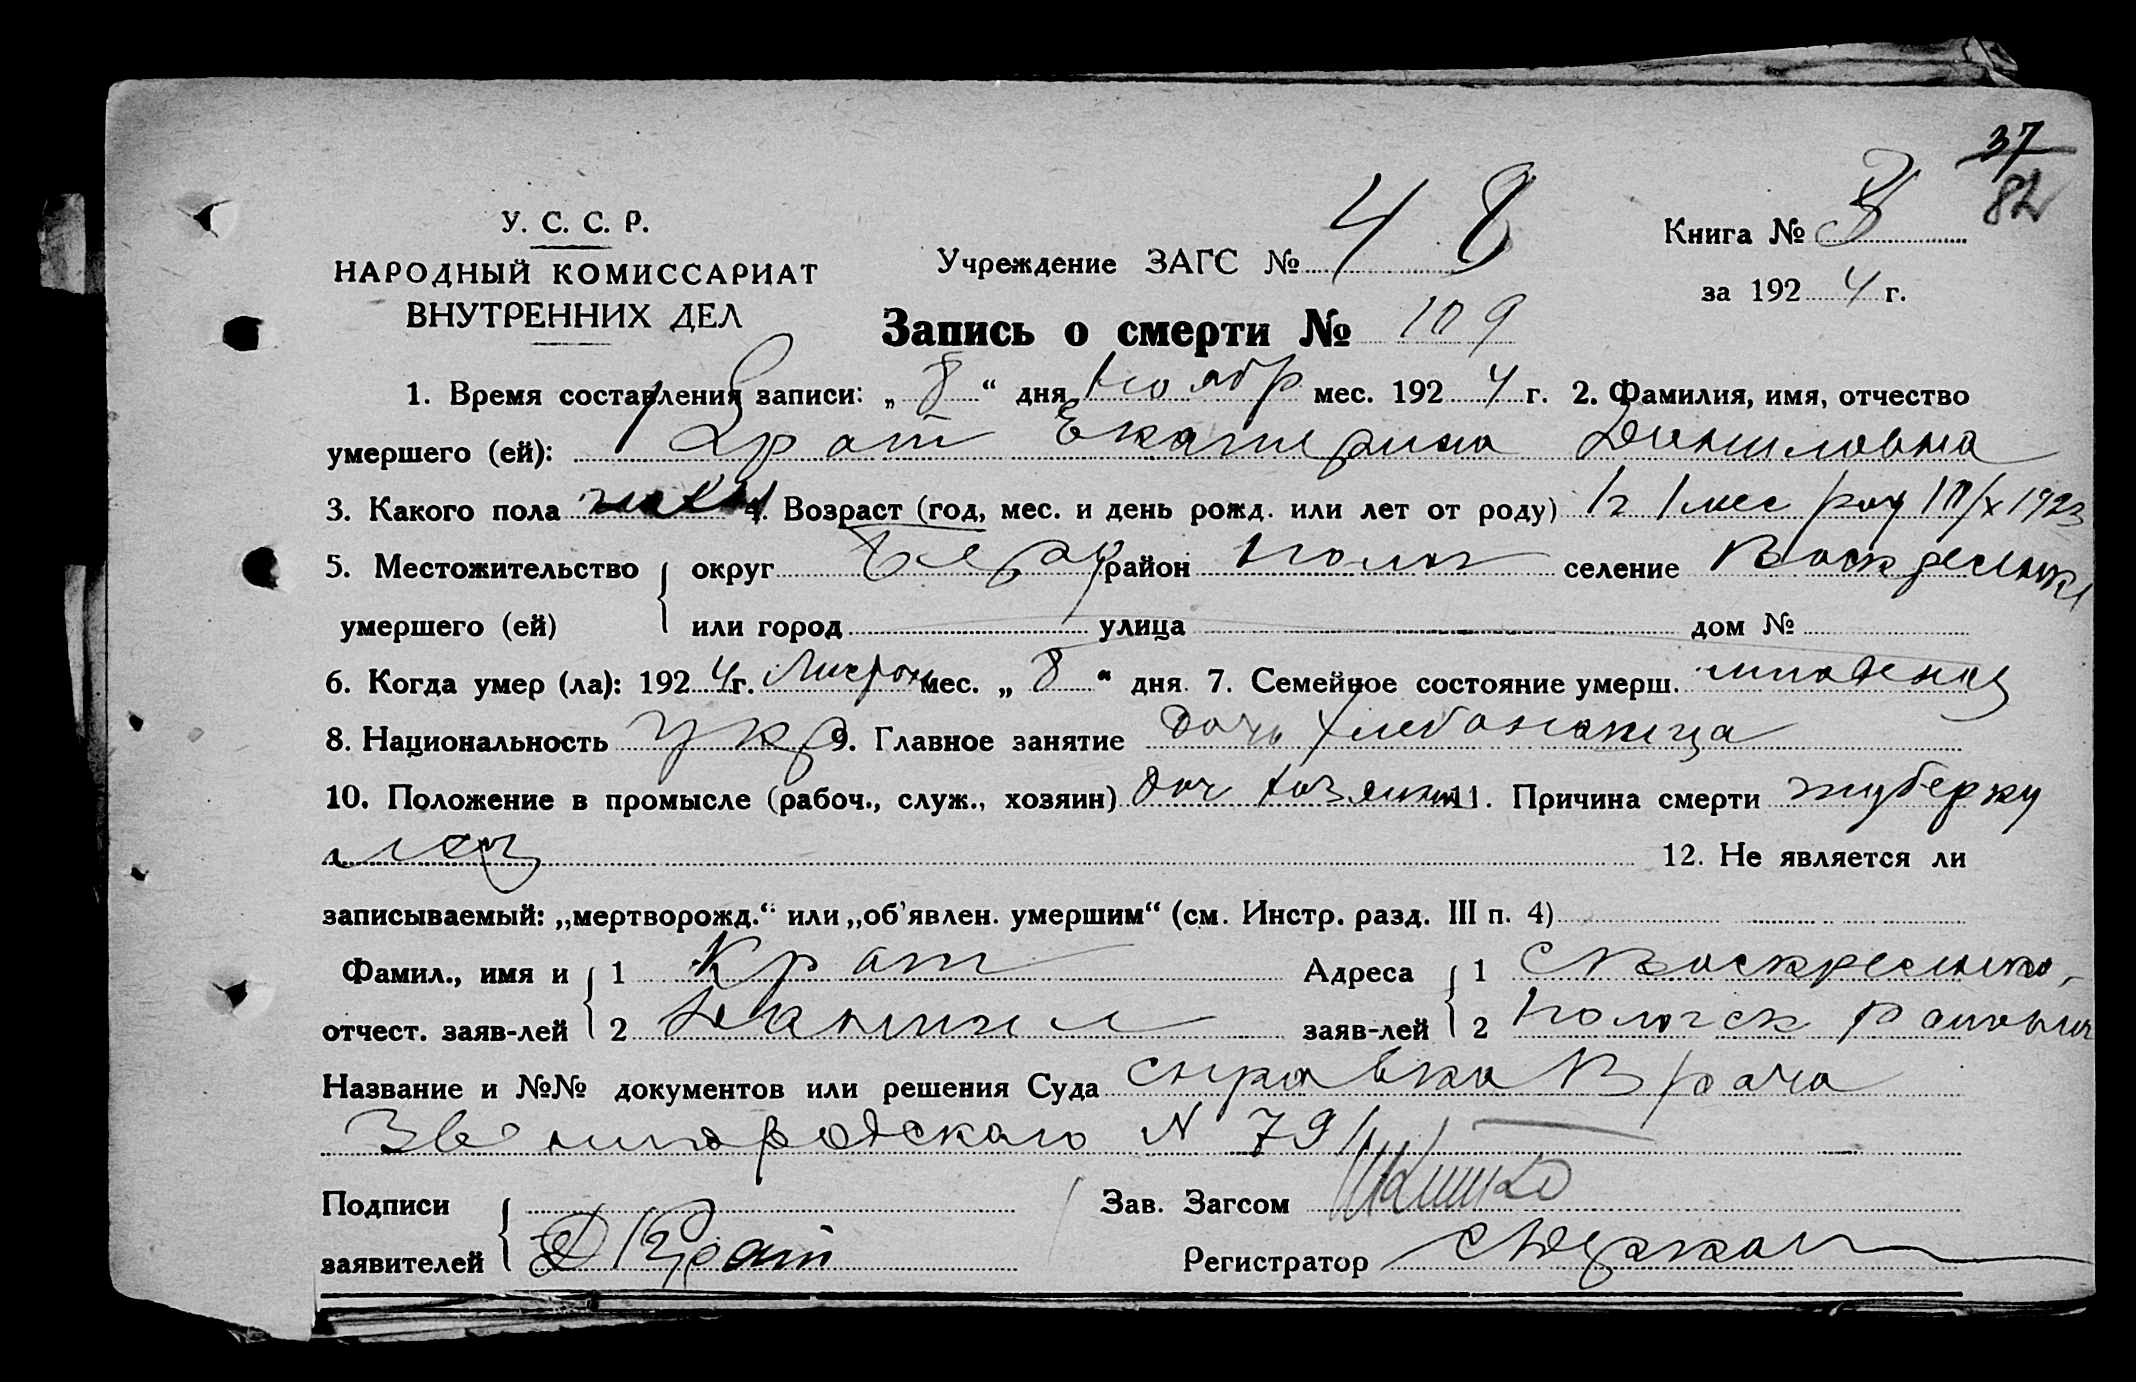 37
82
У. С. С. Р.
НАРОДНЫЙ КОМИССАРИАТ
ВНУТРЕННИХ ДЕЛ
Учреждение ЗАГС № 48
Книга № 3
за 1924 г.
Запись о смерти № 109
1. Время составления записи: „8“ дня ноябр мес. 1924 г. 2. Фамилия, имя, отчество
умершего (ей): Крат Екатерина Даниловна
3. Какого пола 4. Возраст (год, мес. и день рожд. или лет от роду) 1 г 1 мес род /X 1923
5. Местожительство округ Бердя район Полог селение Воскресенка
умершего (ей) или город улица дом №
6. Когда умер (ла): 1924 г. мес. „8“ дня. 7. Семейное состояние умерш. младенец
8. Национальность укр 9. Главное занятие Дочь хлебопашца
10. Положение в промысле (рабоч., служ., хозяин) доч хозяина 11. Причина смерти туберку
лез 12. Не является ли
записываемый: „мертворожд.“ или „об’явлен. умершим“ (см. Инстр. разд. III п. 4)
Фамил., имя и 1 Крат Адреса 1 с Воскресенка,
отчест. заяв-лей 2 Даниил заяв-лей 2 Пологск района
Название и №№ документов или решения Суда справка Врача
Звенигородского N 791
Подписи Зав. Загсом
заявителей Д Крат Регистратор